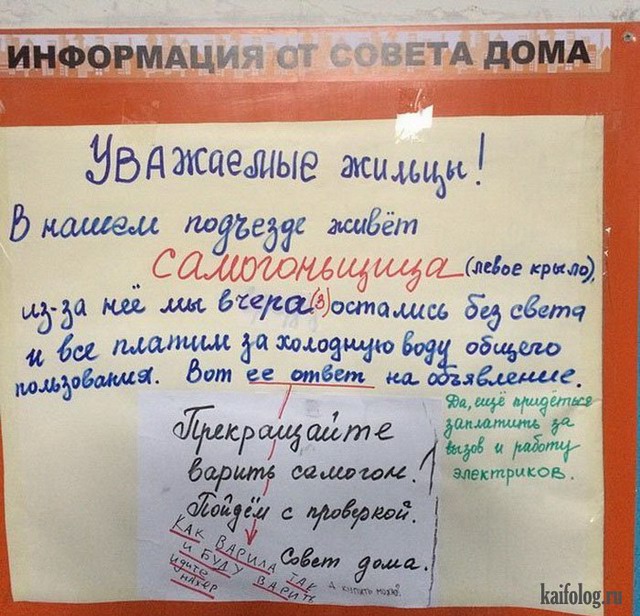 ИНФОРМАЦИЯ ОТ СОВЕТА ДОМА
УВАжаемые жильцы!
В нашем подъезде живёт
САМОГОНЬЩИЦА (левое крыло),
из-за неё мы вчера(3) остались без света
и все платим за холодную воду общего
пользования. Вот ее ответ на объявление.
Да, ещё придёться
заплатить за
вызов и работу
электриков.
Прекращайте
варить самогон!
Пойдём с проверкой.
Совет дома.
КАК ВАРИЛА ТАК
И БУДУ ВАРИТЬ
ИДИТЕ
НАХЕР
А купить можно?
kaifolog.ru